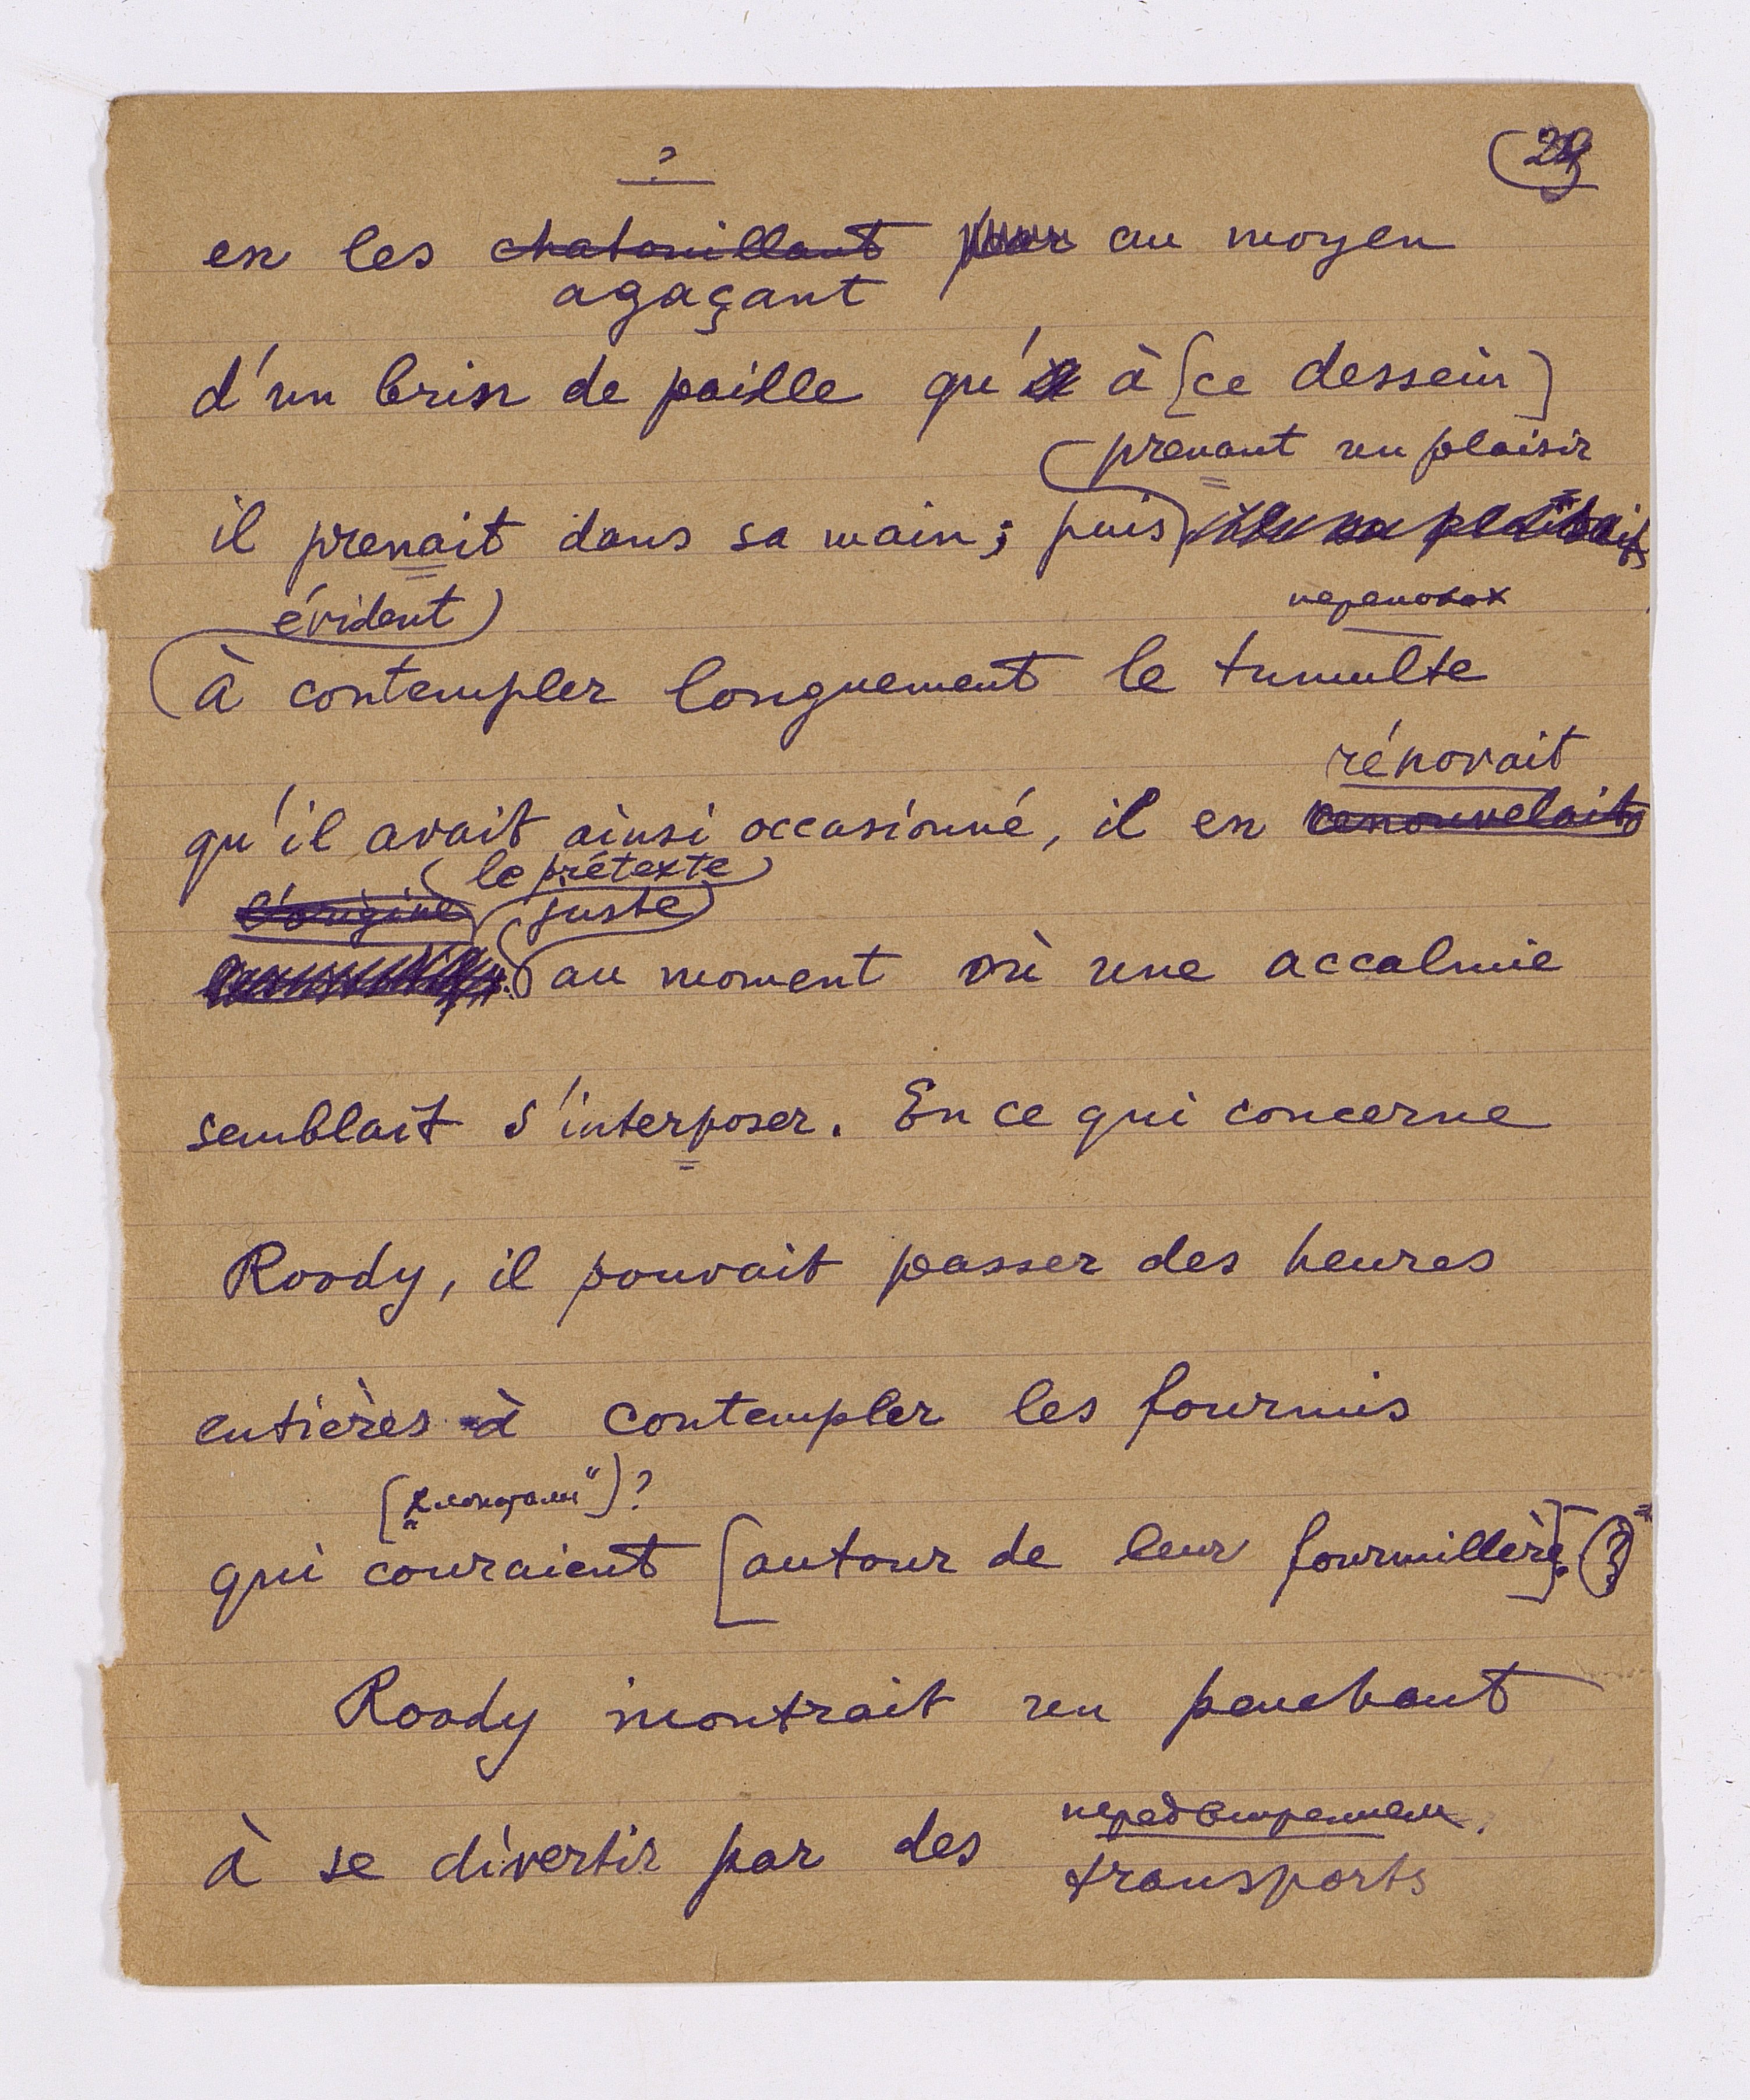 29
?
en les chatouillant pour au moyen
agaçant
d'un brin de paille qu' à [ce dessein]
prenant un plaisir
il prenait dans sa main; puis
évident) переполох
à contempler longuement le tumulte
rénovait
qu'il avait ainsi occasionné, il en renouvelait
le prétexte
l'origine juste
au moment où une accalmie
semblait s'interposer. En ce qui concerne
Roody, il pouvait passer des heures
entières à contempler les fourmis
( )?
qui couraient [autour de leur fourmillère]. (?)
Roody montrait un penchant
à se divertir par des
transports